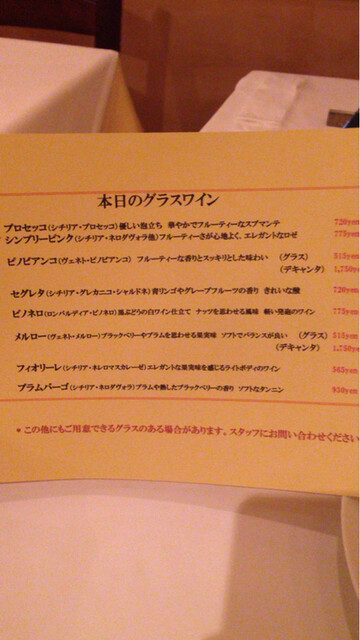 本日のグラスワイン
プロセッコ(シチリア・プロセッコ)優しい泡立ち 華やかでフルーティーなスプマンテ 720yen
シンプリーピンク(シチリア・ネロダヴォラ他)フルーティーさが心地よく、エレガントなロゼ 775yen
ピノビアンコ(ヴェネト・ピノビアンコ) フルーティーな香りとスッキリとした味わい (グラス) 515yen
(デキャンタ) 1,750ye
セグレタ(シチリア・グレカニコ・シャルドネ)青リンゴやグレープフルーツの香り きれいな酸 720yen
ピノネロ(ロンバルディア・ピノネロ)黒ぶどうの白ワイン仕立て ナッツを思わせる風味 軽い発泡のワイン 775yen
メルロー(ヴェネト・メルロー)ブラックベリーやプラムを思わせる果実味 ソフトでバランスが良い (グラス) 515yen
(デキャンタ) 1,750ye
フィオリーレ(シチリア・ネレロマスカレーゼ)エレガントな果実味を感じるライトボディのワイン 565yen
プラムバーゴ(シチリア・ネロダヴォラ)プラムや熟したブラックベリーの香り ソフトなタンニン 930yen
*この他にもご用意できるグラスのある場合があります。スタッフにお問い合わせください